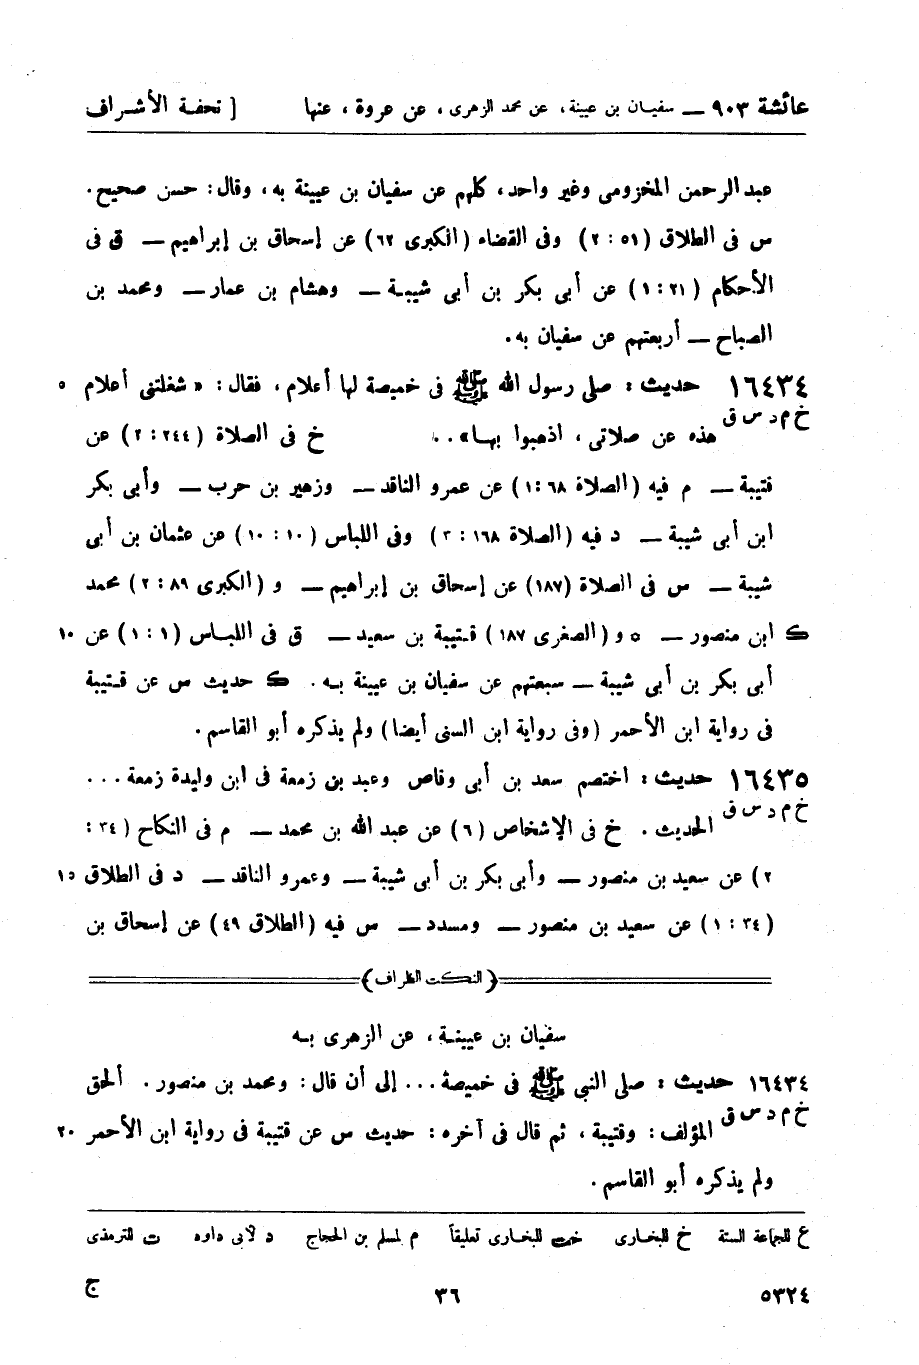 عائشة ٩٠٣ — سفيان بن عيينة، عن محمد الزهرى، عن عروة، عنها [ تحفة الأشراف
عبد الرحمن المخزومى وغير واحد، كلهم عن سفيان بن عيينة به، وقال: حسن صحيح.
س فى الطلاق (٥١ : ٢) وفى القضاء (الكبرى ٦٢) عن إسحاق بن إبراهيم — ق فى
الأحكام (٢١ : ١) عن أبى بكر بن أبى شيبة — وهشام بن عمار — ومحمد بن
الصباح — أربعتهم عن سفيان به.
١٦٤٣٤ حديث : صلى رسول الله ﷺ فى خميصة لها أعلام، فقال: «شغلتنى أعلام ٥
خ م د س ق هذه عن صلاتى، اذهبوا بها».. خ فى الصلاة (٢٤٤ : ٢) عن
قتيبة — م فيه (الصلاة ٦٨ :١) عن عمرو الناقد — وزهير بن حرب — وأبى بكر
ابن أبى شيبة — د فيه (الصلاة ١٦٨ : ٣) وفى اللباس (١٠ : ١٠) عن عثمان بن أبى
شيبة — س فى الصلاة (١٨٧) عن إسحاق بن إبراهيم — و (الكبرى ٨٩ : ٢) محمد
ك ابن منصور — ٥ و (الصغرى ١٨٧) قتيبة بن سعيد — ق فى اللباس (١ : ١) عن ١٠
أبى بكر بن أبى شيبة — سبعتهم عن سفيان بن عيينة به. ك حديث س عن قتيبة
فى رواية ابن الأحمر (وفى رواية ابن السنى أيضا) ولم يذكره أبو القاسم.
١٦٤٣٥ حديث : اختصم سعد بن أبى وقاص وعبد بن زمعة فى ابن وليدة زمعة ...
خ م د س ق الحديث. خ فى الإشخاص (٦) عن عبد الله بن محمد — م فى النكاح (٣٤ :
٢) عن سعيد بن منصور — وأبى بكر بن أبى شيبة — وعمرو الناقد — د فى الطلاق ١٥
(٣٤ : ١) عن سعيد بن منصور — ومسدد — س فيه (الطلاق ٤٩) عن إسحاق بن
(النكت الظراف)
سفيان بن عيينة، عن الزهرى به
١٦٤٣٤ حديث : صلى النبى ﷺ فى خميصة ... إلى أن قال: ومحمد بن منصور. ألحق
خ م د س ق المؤلف: وقتيبة، ثم قال فى آخره: حديث س عن قتيبة فى رواية ابن الأحمر ٢٠
ولم يذكره أبو القاسم.
ع للجماعة الستة خ للبخارى خت للبخارى تعليقاً م لمسلم بن الحجاج د لأبى داود ت للترمذى
٥٣٢٤ ٣٦ ج